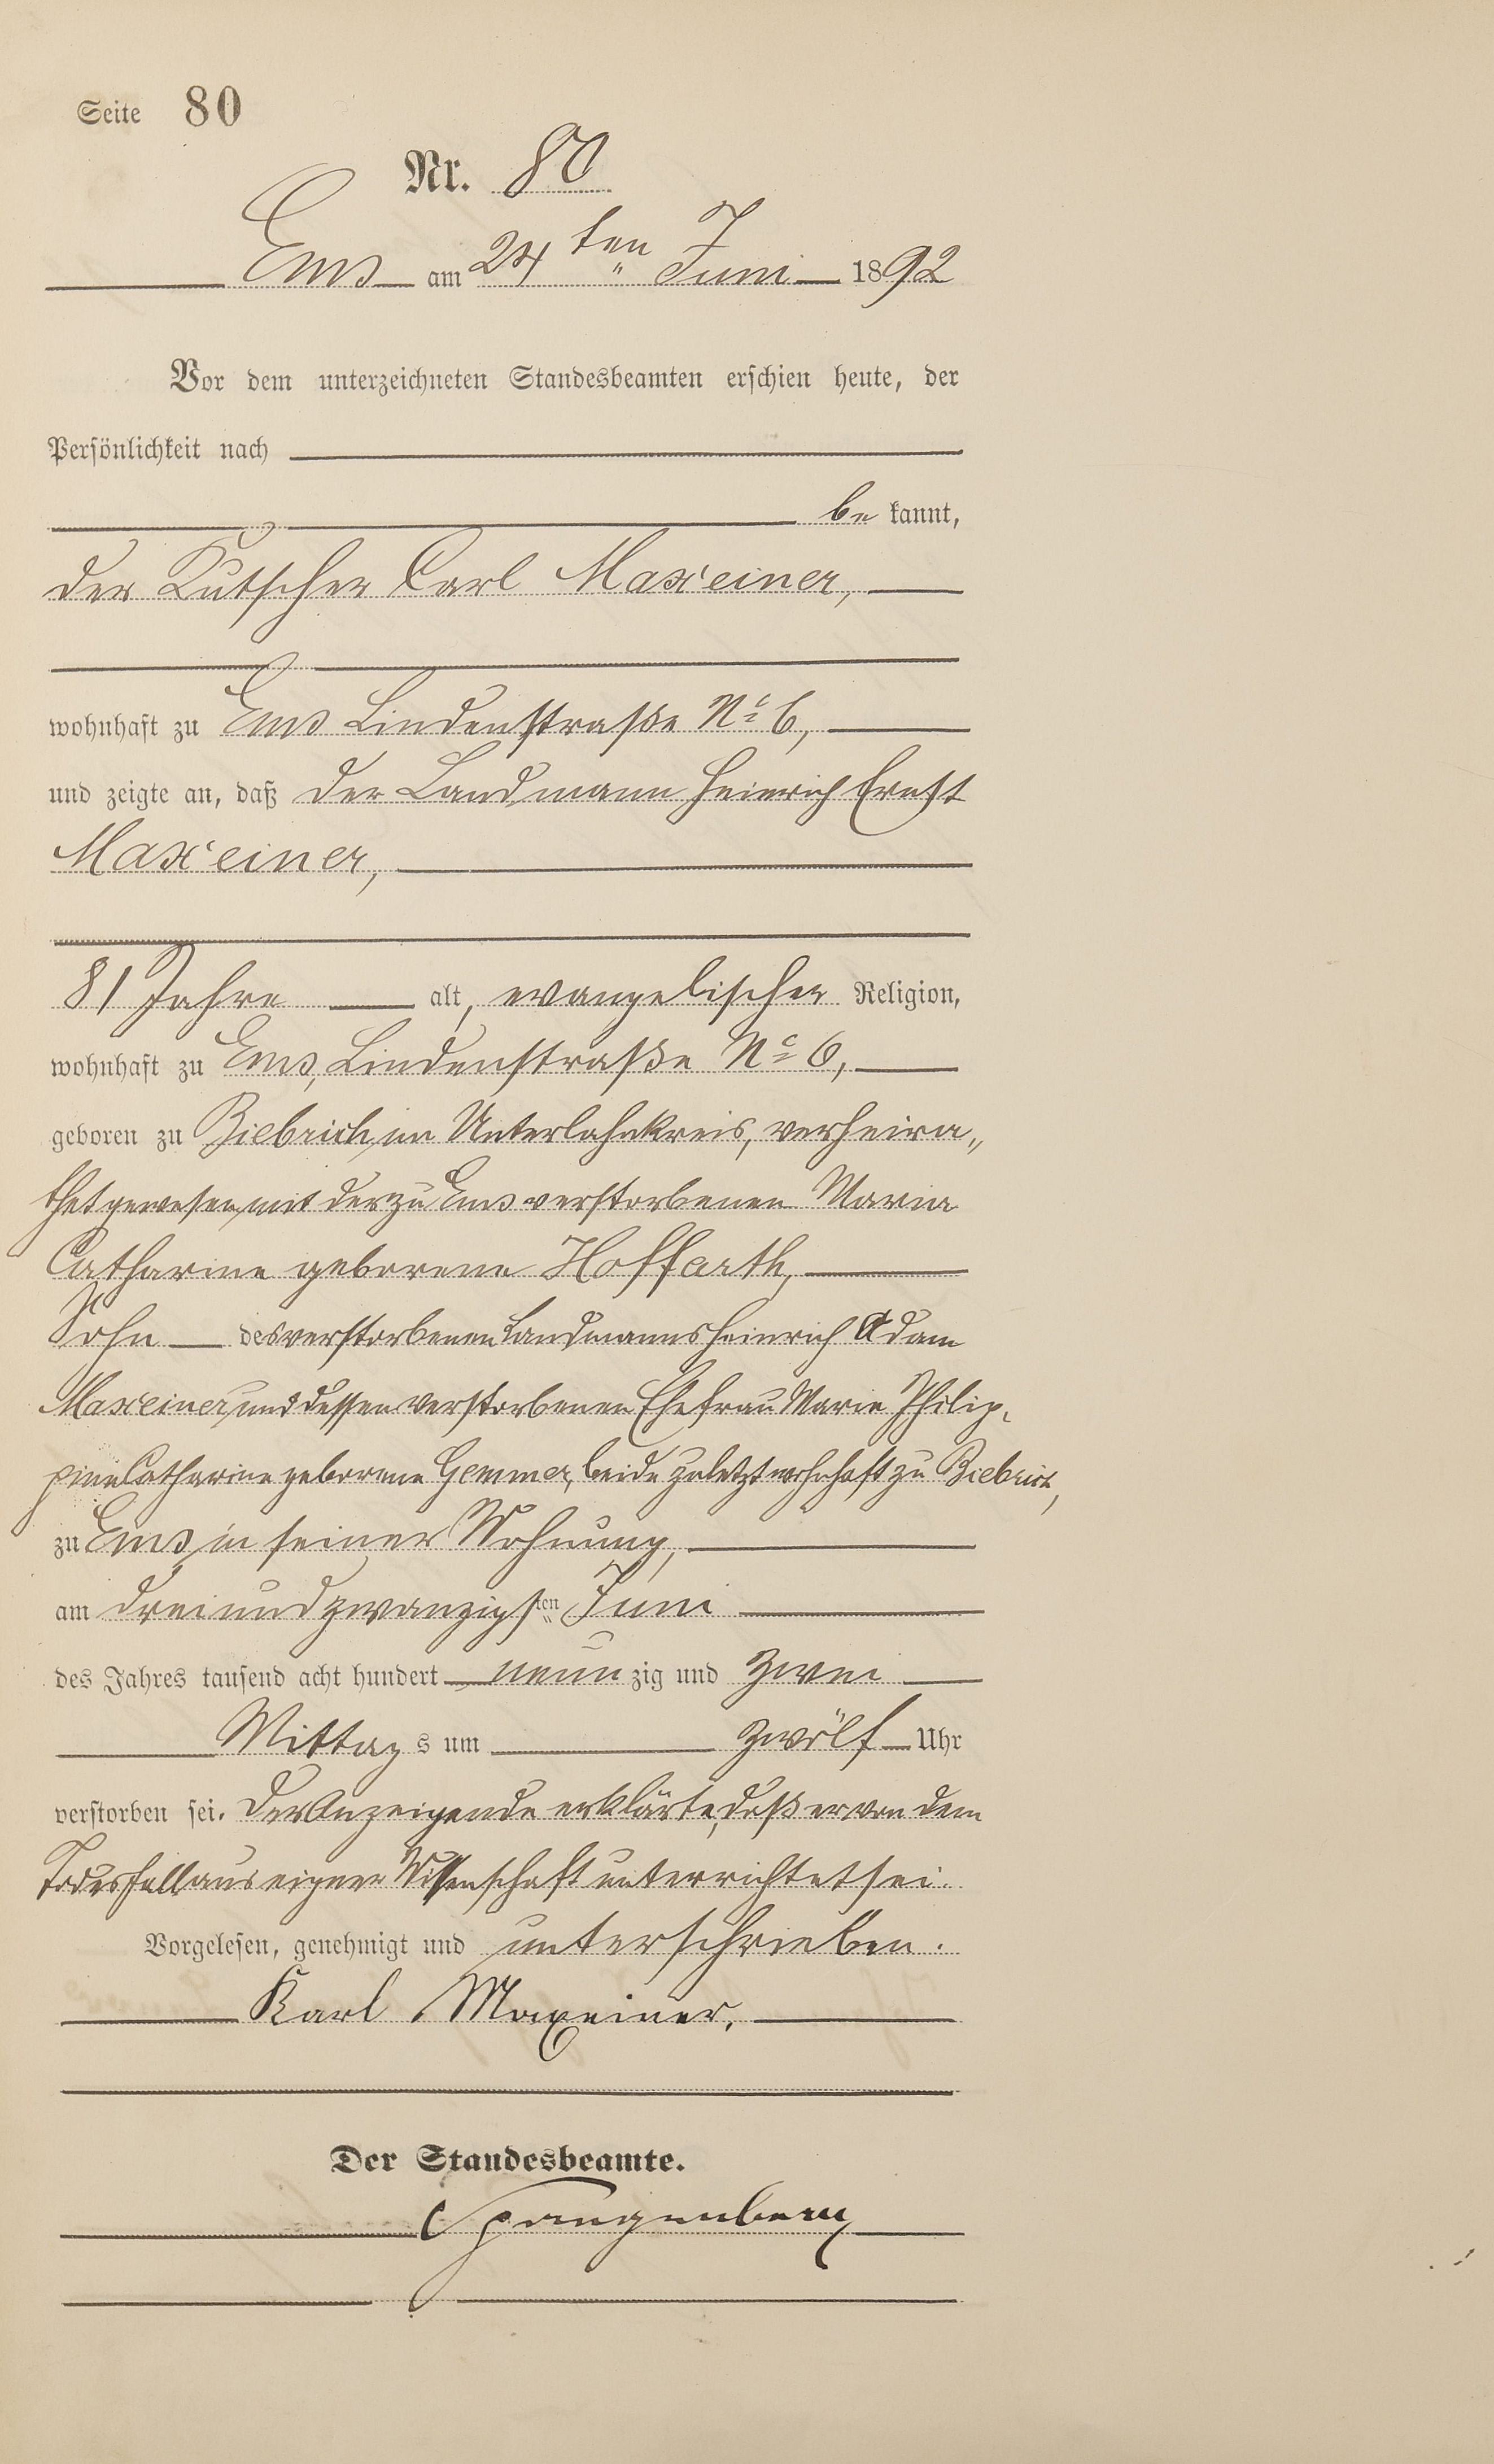 Seite 80
Nr. 80
Ems am 24ten Juni 1892
Vor dem unterzeichneten Standesbeamten erschien heute, der
Persönlichkeit nach
be kannt,
der Kutscher Carl Maxeiner,
wohnhaft zu Ems Lindenstraße No 6,
und zeigte an, daß der Landmann Heinrich Ernst
Maxeiner,
81 Jahre alt, evangelischer Religion,
wohnhaft zu Ems, Lindenstraße No 6,
geboren zu Biebrich, im Unterlahnkreis, verheira„
thet gewesen, mit der zu Ems verstorbenen Maria
Catharine geborene Hoffarth,
Sohn des verstorbenen Landmanns Heinrich Adam
Maxeiner, und dessen verstorbenen Ehefrau Marie Philip„
pine Catharine geborene Gemmer, beide zuletzt wohnhaft zu Biebrich,
zu Ems, in seiner Wohnung,
am dreiundzwanzigsten Juni
des Jahres tausend acht hundert neunzig und zwei
Mittags um zwölf Uhr
verstorben sei. Der Anzeigende erklärte, daß er von dem
Todesfall aus eigner Wissenschaft unterrichtet sei.
Vorgelesen, genehmigt und unterschrieben.
Karl Maxeiner.
Der Standesbeamte.
Spangenberg